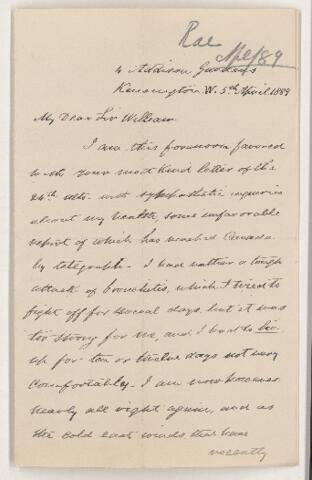 Rae
Apl/89
4 Addison Gardens
Kensington W. 5th April 1889
My Dear Sir William
I am this forenoon favored
with your most kind letter of the
24th ulto. with sympathetic inquiries
about my health, some unfavorable
report of which has reached Canada
by telegraph. I had rather a tough
attack of bronchitis, which I tried to
fight off for several days, but it was
too strong for me, and I had to lie
up for ten or twelve days not very
comfortably. I am now however
nearly all right again, and as
the cold east winds that have
recently